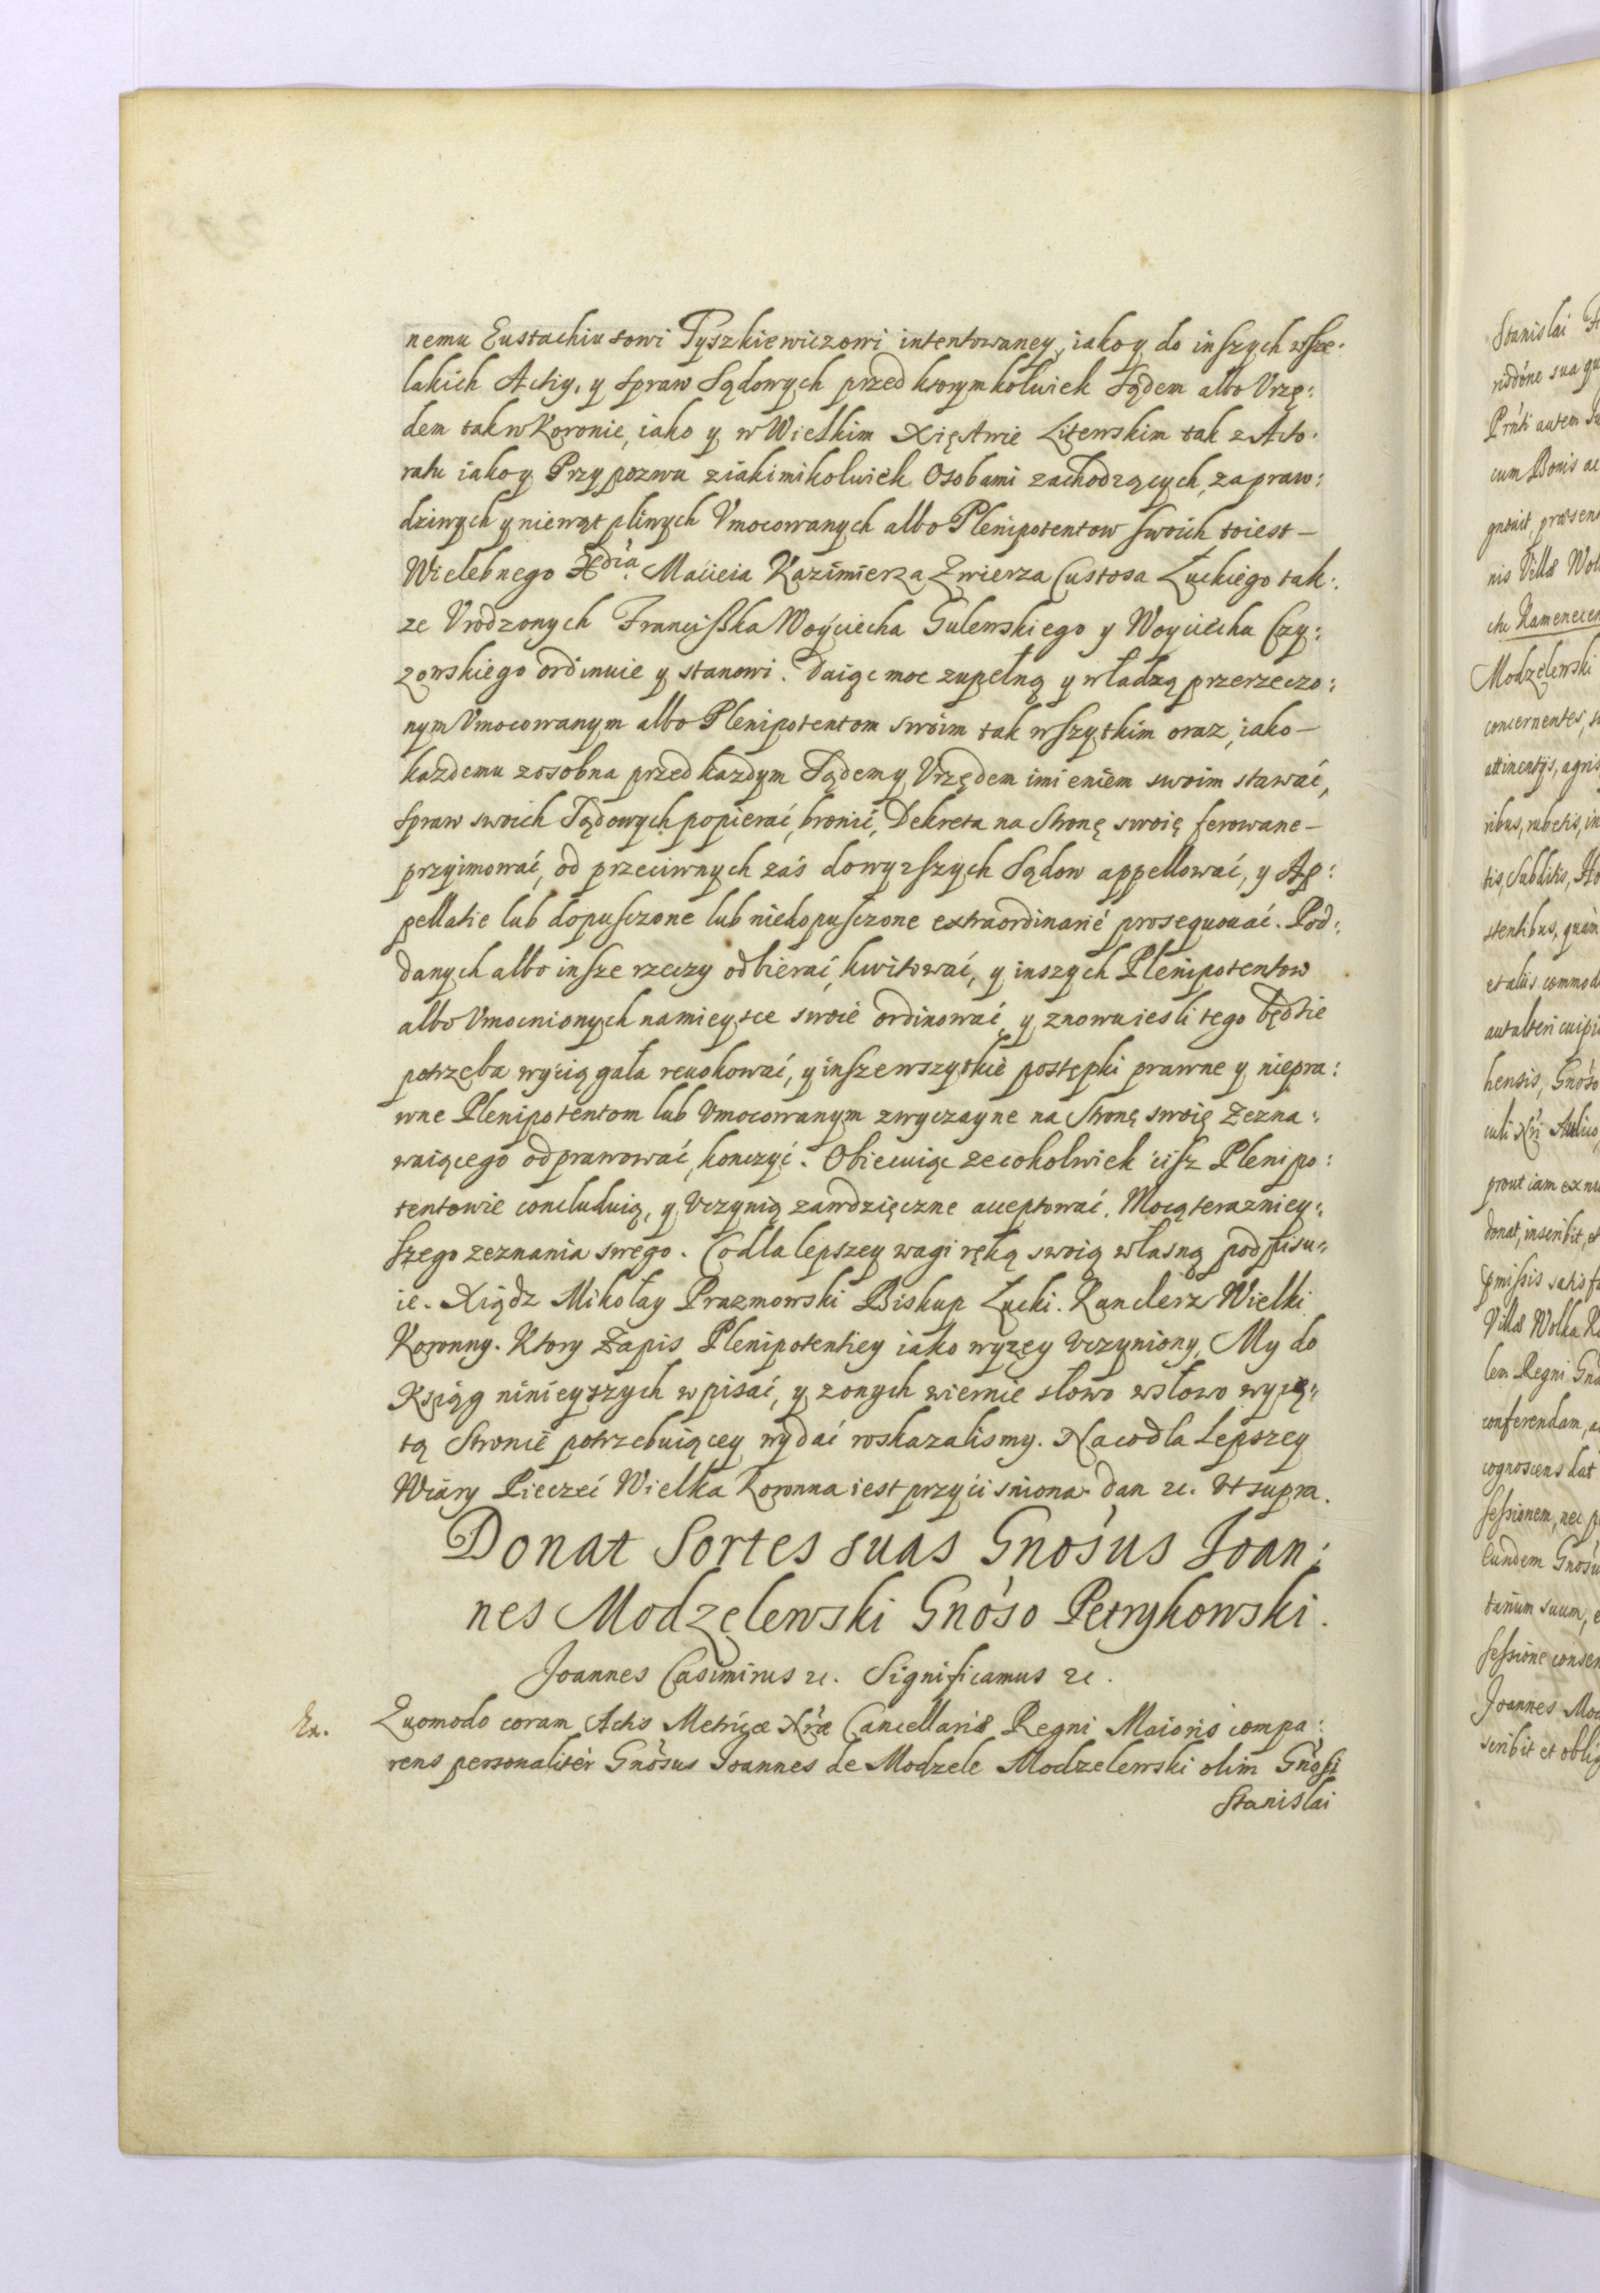 nemu Eustachiusowi Tyszkiewiczowi intentowaney, iako y do inszych wsze:
lakich Actiy, y spraw Sądowych przed ktorymkolwiek Sądem albo Vrzę:
dem tak w Koronie, iako y w Wielkim Xięstwie Litewskim tak z Acto:
ratu iako y Przypozwu z iakimikolwiek Osobami zachodzących, za praw:
dziwych y niewątpliwych Vmocowanych albo Plenipotentow swoich to iest –
Wielebnego Xdza Macieia Kazimierza Zwierza Custosa Łuckiego tak:
ze Vrodzonych Franciszka Woyciecha Gulewskiego y Woyciecha Czy:
zowskiego ordinuie y stanowi. Daiąc moc zupełną y władzą przerzeczo:
nym Vmocowanym albo Plenipotentom swoim tak wszytkim oraz, iako –
kazdemu zosobna przed kazdym Sądem y Vrzędem imieniem swoim stawać,
spraw swoich Sądowych popierać, bronić, Dekreta na Stronę swoię ferowane –
przyimować, od przeciwnych zaś do wyzszych Sądow appellować, y Ap:
pellatie lub dopusczone lub niedopusczone extraordinarie prosequowac. Pod:
danych albo insze rzeczy odbierać, kwitować, y inszych Plenipotentow
albo Vmocnionych na mieysce swoie ordinować, y znowu iesli tego będzie
potrzeba wyciągała reuokować, y insze wszytkie postępki prawne y niepra:
wne Plenipotentom lub Vmocowanym zwyczayne na Stronę swoię Zezna:
waiącego odprawować, konczyć. Obiecuiąc ze cokolwiek cisz Plenipo:
tentowie concluduią, y Vczynią zawdzięczne acceptować. Mocą terazniey:
szego zeznania swego. Co dla lepszey wagi ręką swoią własną podpisu:
ie. Xiądz Mikołay Prazmowski Biskup Łucki. Kanclerz Wielki
Koronny. Ktory Zapis Plenipotentiey iako wyzey Vczyniony, My do
Ksiąg ninieyszych wpisać, y z onych wiernie słowo w słowo wyię:
tą Stronie potrzebuiącey wydać roskazalismy. Na co dla Lepszey
Wiary Pieczeć Wielka Koronna iest przyciśniona. Dan &c. Vt supra.
Donat Sortes suas Gnosus Joan:
nes Modzelewski Gnoso Petrykowski.
Joannes Casimirus &c. Significamus &c.
Ex.
Quomodo coram Actis Metrices Nrae Cancellariae Regni Maioris compa:
rens personaliter Gnosus Joannes de Modzele Modzelewski olim Gnosi
Stanislai